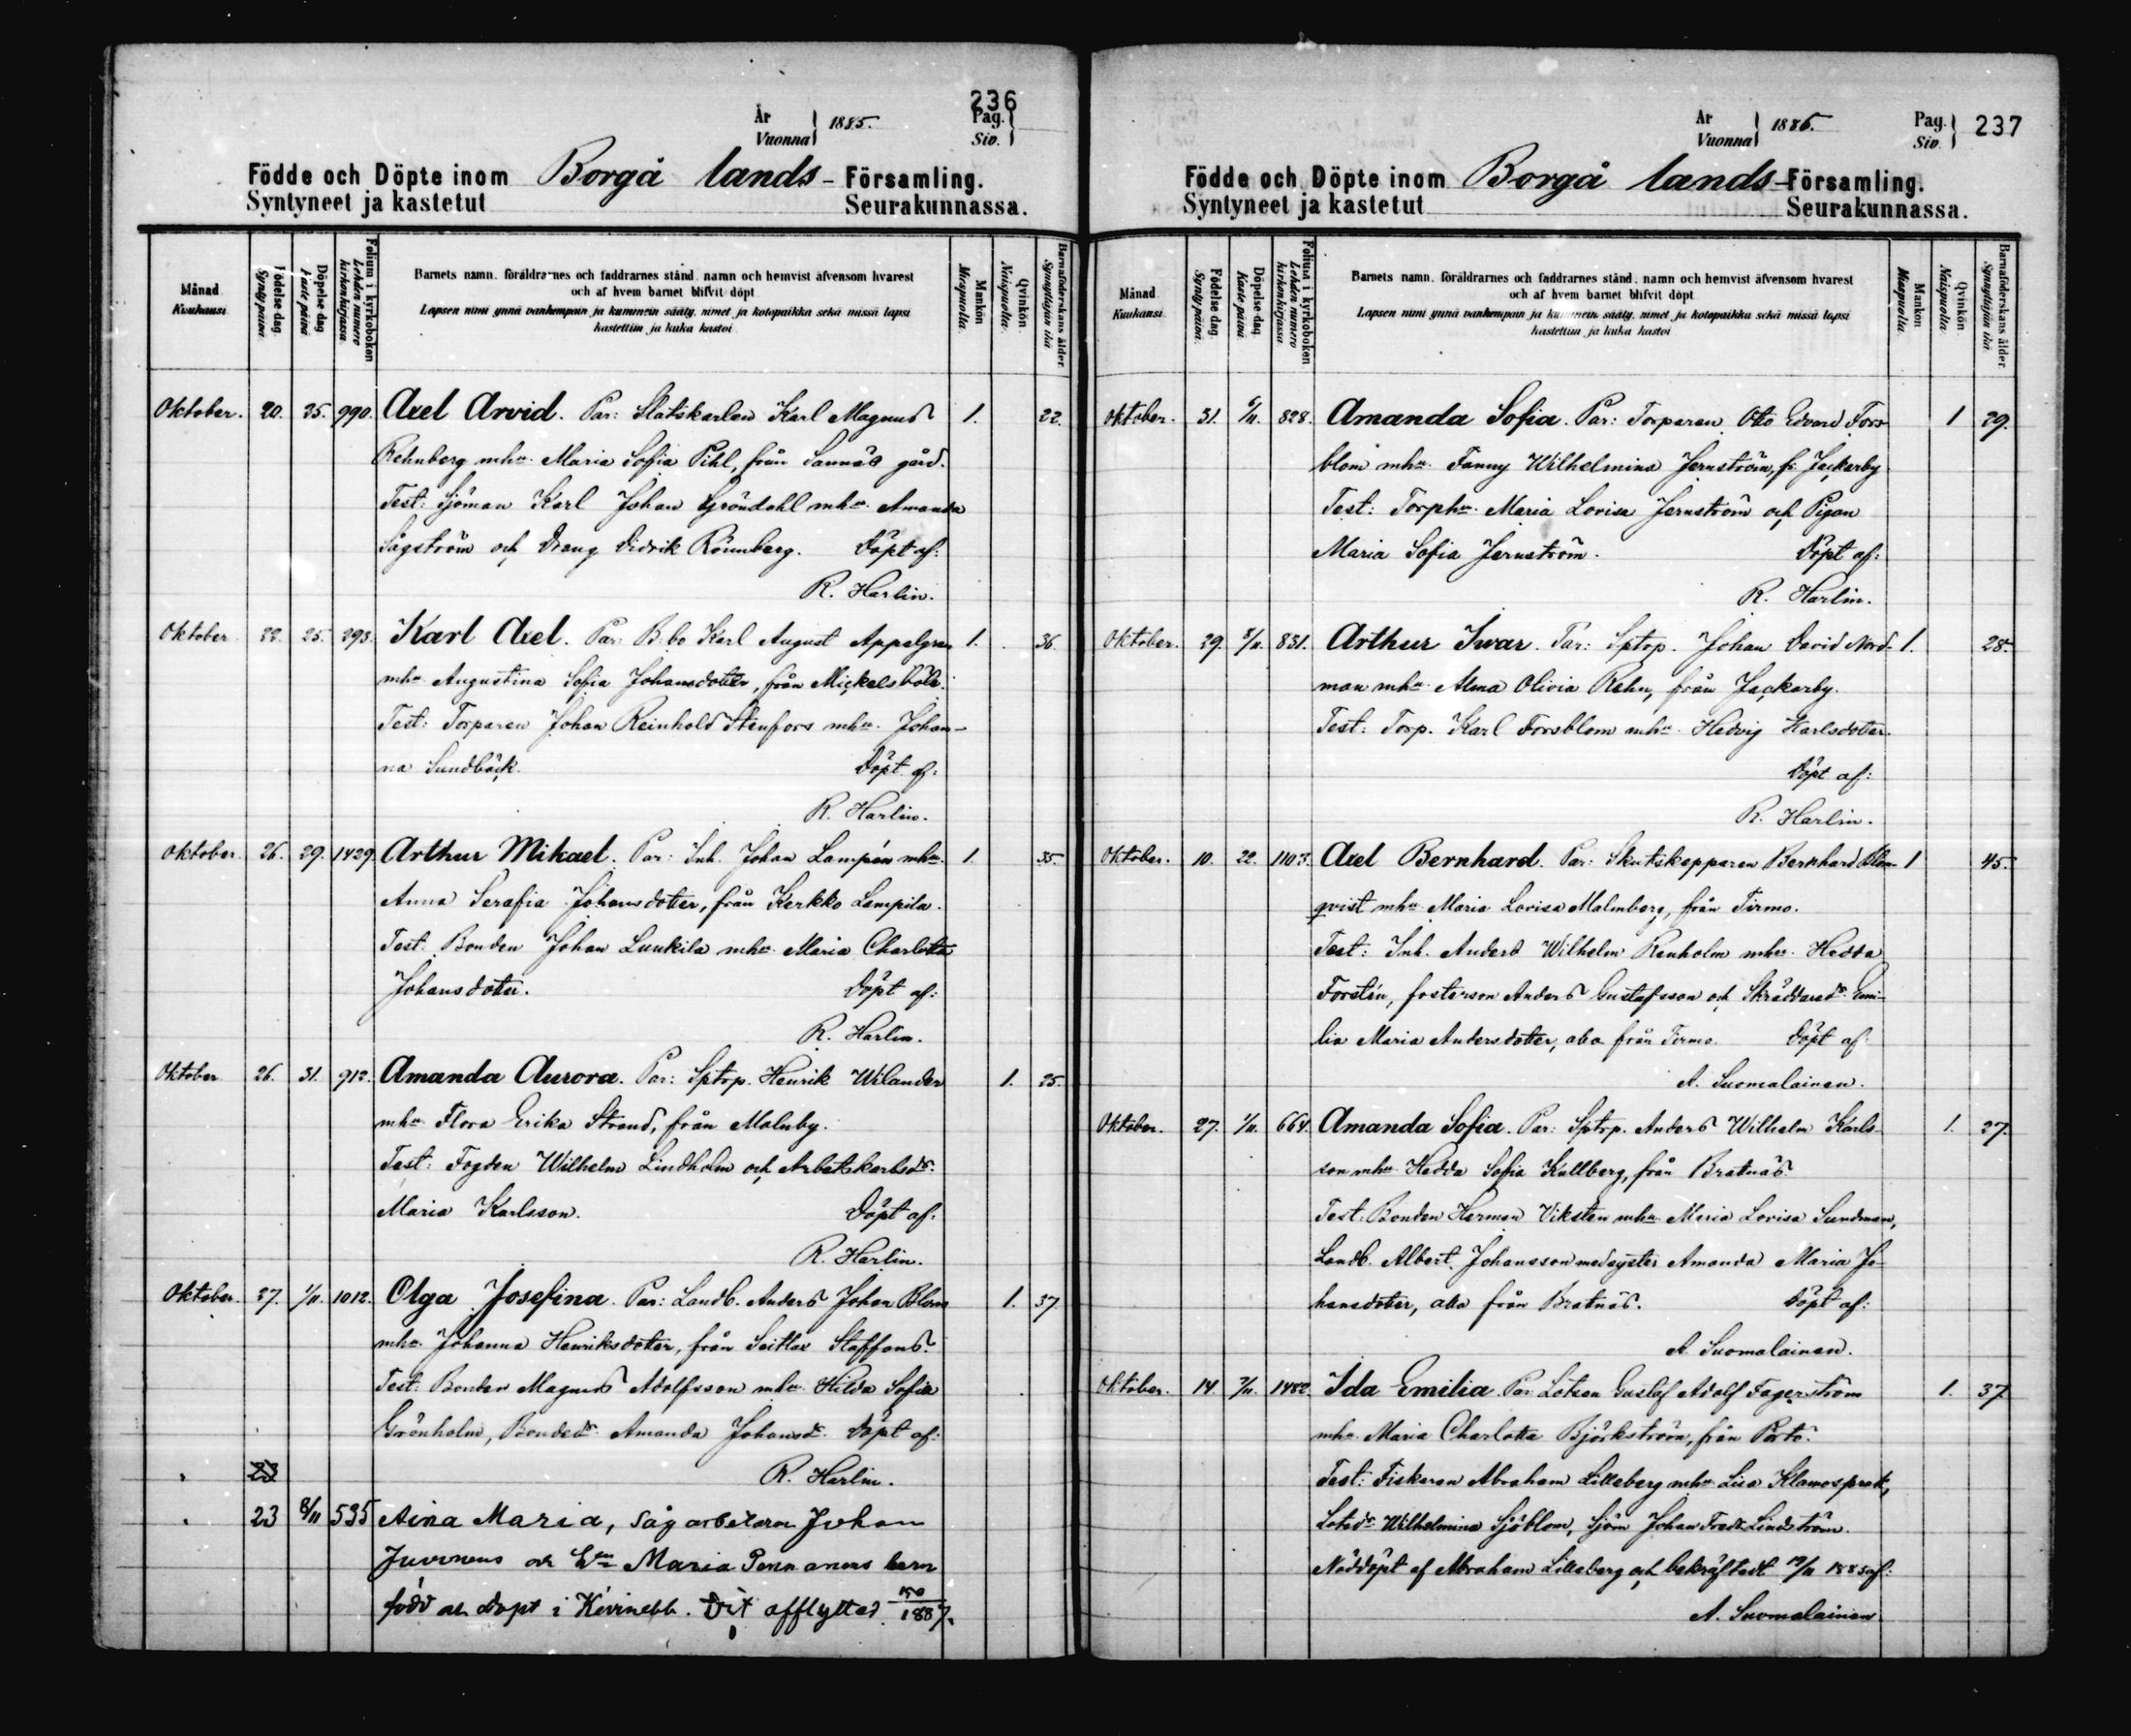 236
År
Vuonna
1885.
Pag.
Siv.
Födde och Döpte inom Borgå lands- Församling.
Syntyneet ja kastetut Seurakunnassa.
Månad
Kuukausi
Födelse-dag
Synty päivä
Döpelse-dag
Kaste päivä
Folium i kyrkoboken
Lehden numero
kirkonkirjassa.
Barnets namn, föräldrarnes och faddrarnes stånd, namn och hemvist äfvensom hvarest
och af hvem barnet blifvit döpt
Lapsen nimi ynnä vanhempain ja kummein sääty, nimet ja kotopaikka sekä missä lapsi
kastettiin ja kuka kastoi
Mankön
Miespuolta.
Qvinkön
Naispuolta.
Barnaföderskans ålder
Synnyttäjän ikä
Oktober. 20. 25. 990. Axel Arvid. Par: Statskarlen Karl Magnus 1. 22.
Rehnberg mhu Maria Sofia Pihl, från Sannäs gård.
Test: Sjöman Karl Johan Gröndahl mhu Amanda
Sågström och Dreng Didrik Rönnberg. Döpt af:
R. Harlin.
Oktober 22. 25. 293. Karl Axel. Par: B.bo Karl August Appelgren 1. 36
mhu Augustina Sofia Johansdotter, från Mickelsböle.
Test: Torparen Johan Reinhold Stenfors mhu Johan-
na Sundbäck. Döpt af:
R. Harlin.
Oktober. 26. 29. 1429. Arthur Mikael. Par: Inh. Johan Lampén mhu 1. 35.
Anna Serafia Johansdotter, från Kerkko Lampila.
Test: Bonden Johan Luukila mhu Maria Charlotta
Johansdoter. Döpt af:
R. Harlin.
Oktober 26. 31. 912. Amanda Aurora. Par: Sptrp. Henrik Wilander 1. 25.
mhu Flora Erika Strand, från Malmby.
Test: Fogden Wilhelm Lindholm och Arbetskarlsdr
Maria Karlsson. Döpt af:
R. Harlin.
Oktober. 27. 1/11. 1012. Olga Josefina. Par: Landb. Anders Johan Blom 1. 37
mhu Johanna Henriksdotter, från Seitlax Staffans.
Test: Bonden Magnus Adolfsson mhu Hilda Sofia
Grönholm, Bondedr Amanda Johansdr Döpt af:
R. Harlin.
23
23 8/11 535 Aina Maria, sågarbetaren Johan
Juvonens och Hun Maria Pennanens barn
född och döpt i Kivinebb. Dit afflyttad 1887.
År
Vuonna
1885.
Pag.
Siv.
237
Födde och Döpte inom Borgå lands- Församling.
Syntyneet ja kastetut Seurakunnassa.
Månad
Kuukausi
Födelse dag.
Synty päivä.
Döpelse dag
Kaste päivä
Folium i kyrkoboken
Lehden numero
kirkonkirjassa.
Barnets namn, föräldrarnes och faddrarnes stånd, namn och hemvist äfvensom hvarest
och af hvem barnet blifvit döpt
Lapsen nimi ynnä vanhempain ja kummein sääty, nimet ja kotopaikka sekä missä lapsi
kastettiin ja kuka kastoi
Mankön
Miespuolta.
Qvinkön
Naispuolta.
Barnaföderskans ålder
Synnyttäjän ikä
Oktober. 31. 828. Amanda Sofia. Par: Torparen Otto Edvard Fors- 1 29.
blom mhu Fanny Wilhelmina Jernström, fr. Jackarby
Test: Torphu Maria Lovisa Jernström och Pigan
Maria Sofia Jernström. Döpt af:
R. Harlin.
Oktober. 29. 831. Arthur Iwar. Par: Sptrp. Johan David Nord- 1. 28.
man mhu Alma Olivia Rehn, från Jackarby.
Test: Torp. Karl Forsblom mhu Hedvig Karlsdoter.
Döpt af:
R. Harlin.
Oktober. 10. 22. 1103. Axel Bernhard. Par: Skutskepparen Bernhard Blom- 1 45.
qvist mhu Maria Lovisa Malmberg, från Tirmo.
Test: Inh. Anders Wilhelm Renholm mhu Hedda
Forstén, fosterson Anders Gustafsson och Skräddaredr Emi-
lia Maria Andersdotter, alla från Tirmo. Döpt af
A. Suomalainen.
Oktober. 27. 1/11. 664. Amanda Sofia. Par: Sptrp. Anders Wilhelm Karls- 1. 27.
son mhu Hedda Sofia Kullberg, från Bratnäs
Test: Bonden Herman Viksten mhu Maria Lovisa Sundman,
Landb. Albert Johansson med syster Amanda Maria Jo-
hansdoter, alla från Bratnäs. Döpt af:
A. Suomalainen.
Oktober. 14. 1482. Ida Emilia. Par: Lotsen Gustaf Adolf Fagerström 1. 37
mhu Maria Charlotta Björkström, från Pörtö.
Test: Fiskaren Abraham Lilleberg mhu Lisa Klamosprat,
Lotsdr Wilhelmina Sjöblom, Sjöm Johan Fredr. Lindström.
Nöddöpt af Abraham Lilleberg och bekräftadt 1885 af:
A. Suomalainen